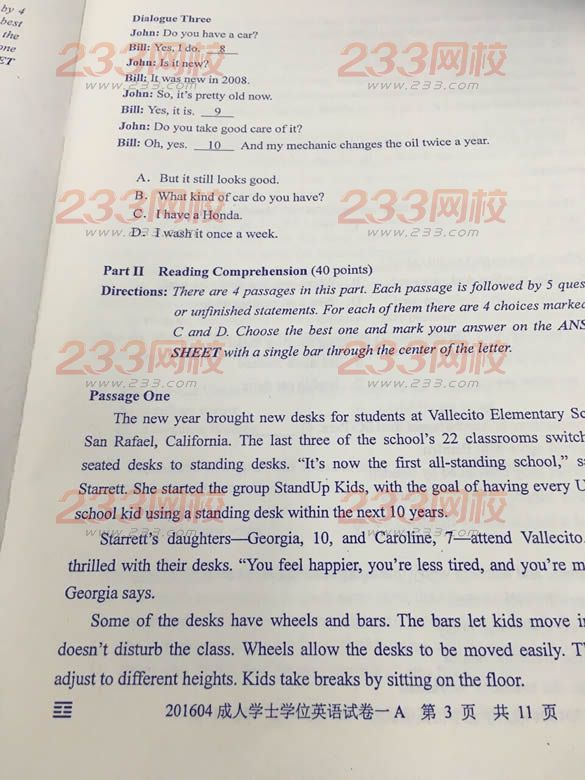 by 4
best
the
one
ET
Dialogue Three
John: Do you have a car?
Bill: Yes, I do. 8
John: Is it new?
Bill: It was new in 2008.
John: So, it's pretty old now.
Bill: Yes, it is. 9
John: Do you take good care of it?
Bill: Oh, yes. 10 And my mechanic changes the oil twice a year.
A. But it still looks good.
B. What kind of car do you have?
C. I have a Honda.
D. I wash it once a week.
Part II Reading Comprehension (40 points)
Directions: There are 4 passages in this part. Each passage is followed by 5 ques
or unfinished statements. For each of them there are 4 choices marked
C and D. Choose the best one and mark your answer on the ANS
SHEET with a single bar through the center of the letter.
Passage One
The new year brought new desks for students at Vallecito Elementary Sc
San Rafael, California. The last three of the school's 22 classrooms switch
seated desks to standing desks. "It's now the first all-standing school," s
Starrett. She started the group StandUp Kids, with the goal of having every U
school kid using a standing desk within the next 10 years.
Starrett's daughters—Georgia, 10, and Caroline, 7—attend Vallecito.
thrilled with their desks. "You feel happier, you're less tired, and you're m
Georgia says.
Some of the desks have wheels and bars. The bars let kids move i
doesn't disturb the class. Wheels allow the desks to be moved easily. T
adjust to different heights. Kids take breaks by sitting on the floor.
201604 成人学士学位英语试卷一 A 第 3 页 共 11 页
233网校
www.233.com
233网校
www.233.com
233网校
www.233.com
233网校
www.233.com
233网校
www.233.com
233网校
www.233.com
233网校
www.233.com
233网校
www.233.com